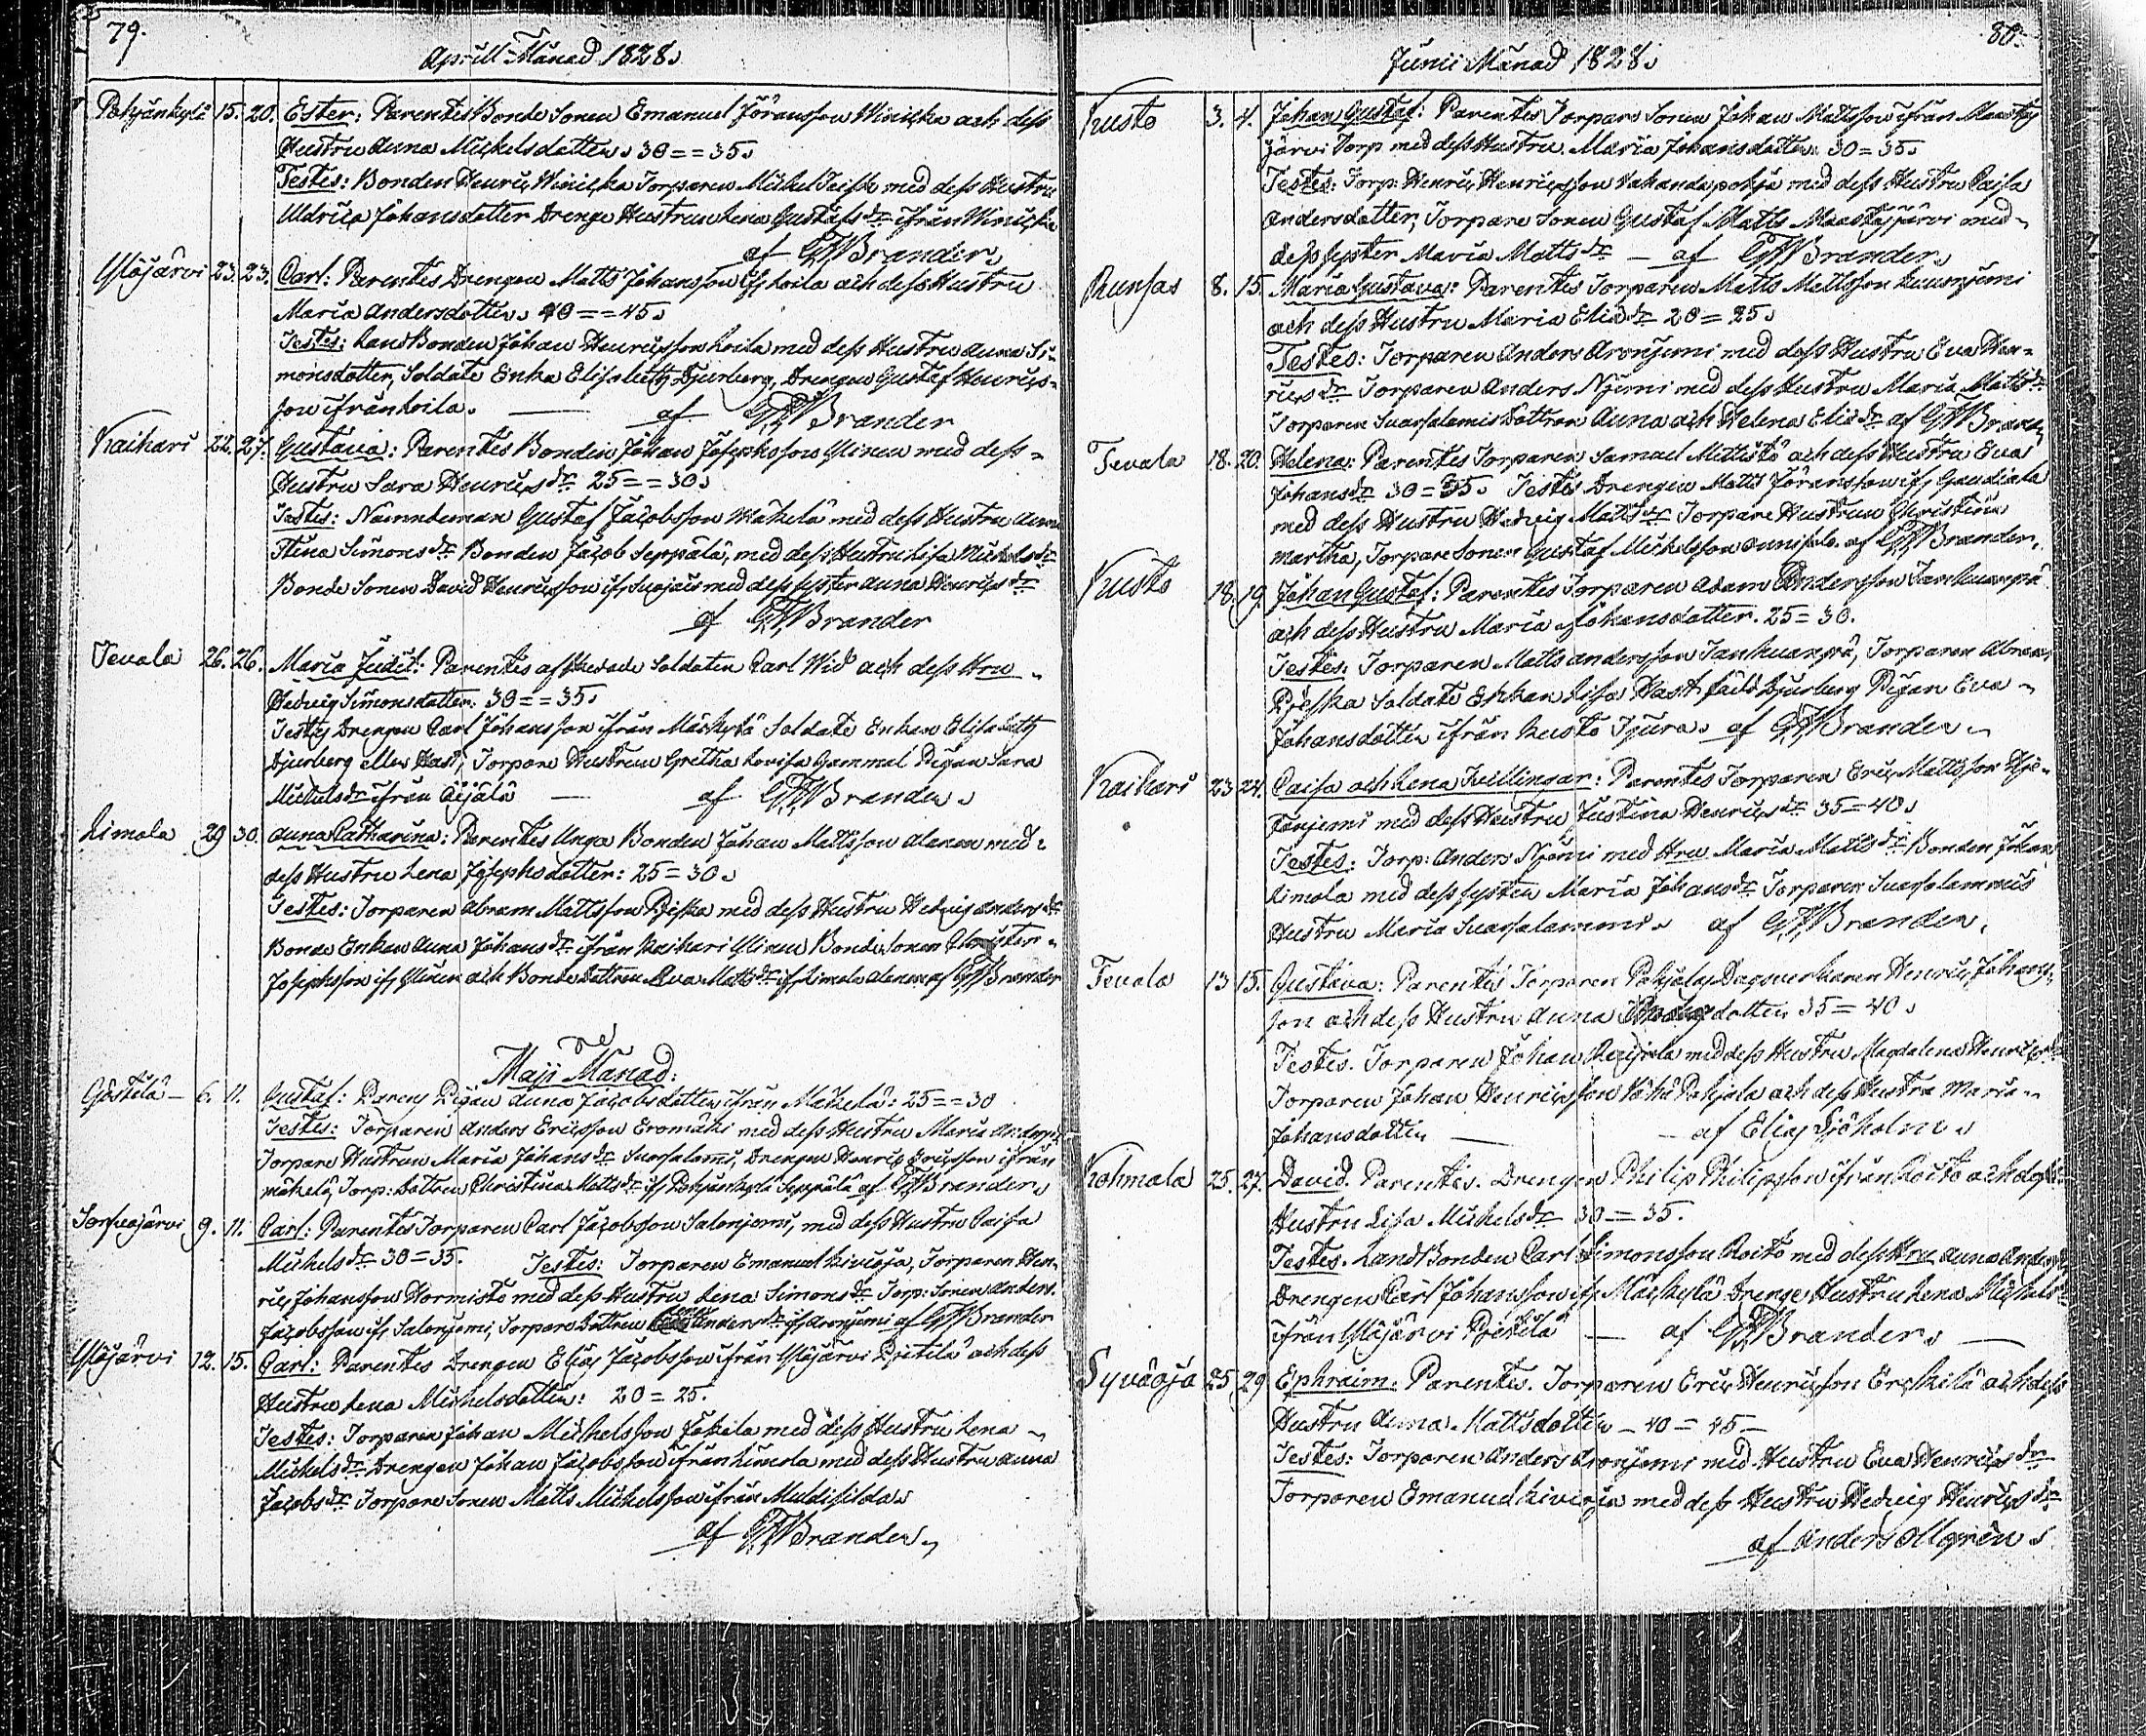 79.
Aprill Månad 1828.
Pohjankylä 15. 20. Ester: Parentes Bonde Sonen Emanuel Jöransson Winicka och dess
Hustru Anna Mickelsdotter. 30 = = 35.
Testes: Bonden Henric Winicka Torparen Mickel Teiska med dess Hustru
Uldrica Johansdotter Drenge Hustrun Lena Gustafs dr ifrån Winicka
af GFWBrander
Ylöjärvi 23. 23. Carl: Parentes Drengen Matts Johansson ifr Koila och dess Hustru
Maria Andersdotter. 40 = = 45.
Testes: Landbonden Johan Henricsson Koila med dess Hustru Anna Si-
monsdotter, Soldate Enka Elisabeth Djurberg, Drengen Gustaf Henrics-
son ifrån Koila. — af GFWBrander
Kaihari 22. 27. Gustava: Parentes Bonden Johan Josephsson Ylinen med dess
Hustru Sara Henrics dr 25 = = 30.
Testes: Nämndeman Gustaf Jacobsson Mäkelä med dess Hustru Anna
Stina Simons dr Bonden Jacob Seppälä, med dess Hustru Lisa Mickels dr
Bonde Sonen David Henricsson ifr Suojais med dess syster Anna Henrics dr
af GFWBrander
Tevala 26. 26. Maria Judit: Parentes afskedade Soldaten Carl Wid och dess Hru
Hedvig Simonsdotter. 30 = = 35.
Testes Drengen Carl Johansson ifrån Mäckylä Soldate Enkan Elisabeth
Djurberg eller Hast, Torpare Hustrun Gretha Lovisa Gammal Pigan Sara
Mickels dr ifrån Äijälä — af GFWBrander.
Limola 29 30. Anna Catharina: Parentes Unga Bonden Johan Mattsson Alanen med
dess Hustru Lena Josephsdotter: 25 = 30.
Testes: Torparen Abram Mattsson Pjeska med dess Hustru Hedvig Anders dr
Bonde Enkan Anna Johans dr ifrån Kaihari Ylinen Bonde Sonen
Josephsson ifr Ylinen och Bonde Dottren Eva Matts dr ifr Limola Alanen af GFWBrander
Maji Månad:
Göstilä — 6. 11. Gustaf: Parens Pigan Anna Jacobsdotter ifrån Mäkelä: 25 = = 30
Testes: Torparen Anders Ericsson Eromäki med dess Hustru Maria Anders dr
Torpare Hustrun Maria Johans dr Suarsalami, Drengen Henric Ericsson ifrån
Mäkelä, Torp: Dottren Christina Matts dr ifr Pohjankylä Seppälä af GFWBrander
Sorpojärvi 9. 11. Carl: Parentes Torparen Carl Jacobsson Salonjemi, med dess Hustru Caisa
Mickels dr 30 = 35. Testes: Torparen Emanuel Kivioja, Torparen Hen-
ric Johansson Hormisto med dess Hustru Lena Simons dr Torp: Sonen Anders
Jacobsson ifr Salonjemi, Torpare Dottren Anders dr ifr Aronjemi af GFWBrander
Ylöjärvi 12. 15. Carl: Parentes Drengen Elias Jacobsson ifrån Ylöjärvi Pietilä och dess
Hustru Lena Mickelsdotter: 20 = 25.
Testes: Torparen Johan Mickelsson Jokela med dess Hustru Lena
Mickels dr Drengen Johan Jacobsson ifrån Limola med dess Hustru Anna
Jacobs dr Torpare Sonen Matts Mickelsson ifrån Muldisilda.
af GFWBrander
80.
Junii Månad 1828.
Kusto 3. 4. Johan Gustaf: Parentes Torpare Sonen Johan Mattsson ifrån Maasty
järvi Torp med dess Hustru Maria Johansdotter 30 = 35.
Testes: Torp: Henric Henricsson Vahandapohja med dess Hustru Caisa
Andersdotter, Torpare Sonen Gustaf Matts Maastyjärvi med
dess syster Maria Matts dr — af GFWBrander.
Runsas 8. 15. Maria Gustava: Parentes Torparen Matts Mattsson Kuusnjemi
och dess Hustru Maria Elias dr 20 = 25.
Testes: Torparen Anders Aronjemi med dess Hustru Eva Hen-
rics dr Torparen Anders Njemi med dess Hustru Maria Matts dr
Torparen Suarsalamis Dottren Anna och Helena Elias dr af GFWBrander
Tevala 18. 20. Helena: Parentes Torparen Samuel Mettistö och dess Hustru Eva
Johans dr 30 = 35. Testes Drengen Matts Jöransson ifr Gaudiala
med dess Hustru Hedvig Matts dr Torpare Hustrun Christina
Martha, Torpare Sonen Gustaf Mickelsson af GFWBrander.
Kusto 18. 19. Johan Gustaf: Parentes Torparen Adam Andersson Jankuanpä
och dess Hustru Maria Johansdotter. 25 = 30.
Testes: Torparen Matts Andersson Jankuanpä, Torparen Abram
Pjeska Soldate Enkan Lisa Hast född Djurberg Pigan Eva
Johansdotter ifrån Kusto Tjura. af GFWBrander
Kaihari 23 24. Caisa och Lena Tvillingar: Parentes Torparen Eric Mattsson
med dess Hustru Justina Henrics dr 35 = 40.
Testes: Torp: Anders Njemi med Hru Maria Matts dr Bonden Johan
Limola med dess syster Maria Johans dr Torparen Suarsalammis
Hustru Maria Suarsalammi. af GFWBrander.
Tevala 13 15. Gustava: Parentes Torparen Pohjolas Dagsverkaren Henric Johans-
son och dess Hustru Anna dotter 35 = 40.
Testes. Torparen Johan Reijola med dess Hustru Magdalena Henrics dr
Torparen Johan Henricsson Vähä Pohjola och dess Hustru Maria
Johansdotter — af Elias Sjöholm.
Kohmala 25. 27. David. Parentes. Drengen Philip Philipsson ifrån Roito och dess
Hustru Lisa Mickels dr 30 = 35.
Testes. Landbonden Carl Simonsson Roito med dess Hru Anna Anders dr
Drengen Carl Johansson ifr Mäckylä Drenge Hustru Lena Mickels dr
ifrån Ylöjärvi Pietilä — af GFWBrander. —
Syväoja 25 29 Ephraim: Parentes. Torparen Eric Henricsson Erckilä och dess
Hustru Anna Mattsdotter — 40 = 45 —
Testes: Torparen Anders Aronjemi med Hustru Eva Henrics dr
Torparen Emanuel Kivioja med dess Hustru Hedvig Henrics dr
af Anders Allgrén.